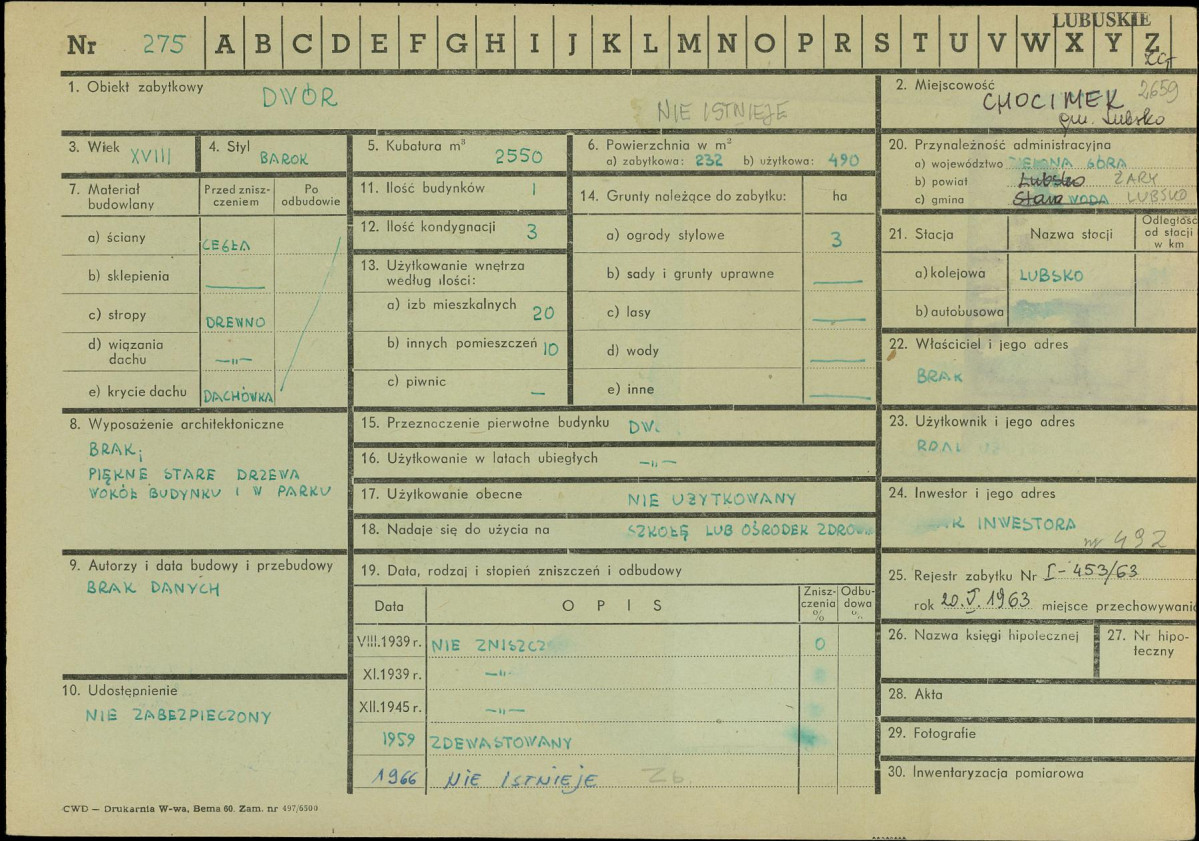 LUBUSKIE
Nr 275 A B C D E F G H I J K L M N O P R S T U V W X Y Z
1. Obiekt zabytkowy
DWÓR
NIE ISTNIEJE
2. Miejscowość 2659
CHOCIMEK
gm. Lubsko
3. Wiek XVIII
4. Styl
BAROK
5. Kubatura m³
2550
6. Powierzchnia w m²
a) zabytkowa: 232 b) użytkowa: 490
20. Przynależność administracyjna
a) województwo ZIELONA GÓRA
b) powiat Lubsko ŻARY
c) gmina Stara WODA LUBSKO
7. Materiał budowlany
Przed zniszczeniem
Po odbudowie
a) ściany CEGŁA
b) sklepienia —
c) stropy DREWNO
d) wiązania dachu —„—
e) krycie dachu DACHÓWKA
11. Ilość budynków 1
12. Ilość kondygnacji 3
13. Użytkowanie wnętrza według ilości:
a) izb mieszkalnych 20
b) innych pomieszczeń 10
c) piwnic —
14. Grunty należące do zabytku: ha
a) ogrody stylowe 3
b) sady i grunty uprawne —
c) lasy —
d) wody —
e) inne —
21. Stacja
Nazwa stacji
Odległość od stacji w km
a) kolejowa LUBSKO
b) autobusowa
22. Właściciel i jego adres
BRAK
8. Wyposażenie architektoniczne
BRAK;
PIĘKNE STARE DRZEWA
WOKÓŁ BUDYNKU I W PARKU
15. Przeznaczenie pierwotne budynku
16. Użytkowanie w latach ubiegłych —„—
17. Użytkowanie obecne NIE UŻYTKOWANY
18. Nadaje się do użycia na SZKOŁĘ LUB OŚRODEK
23. Użytkownik i jego adres
24. Inwestor i jego adres
INWESTORA
nr 492
9. Autorzy i data budowy i przebudowy
BRAK DANYCH
10. Udostępnienie
NIE ZABEZPIECZONY
19. Data, rodzaj i stopień zniszczeń i odbudowy
Data
OPIS
Zniszczenia %
Odbudowa %
VIII.1939 r. NIE ZNISZCZ 0
XI.1939 r. —„—
XII.1945 r. —„—
1959 ZDEWASTOWANY
1966 NIE ISTNIEJE Zb.
25. Rejestr zabytku Nr I-453/63
rok 20.V.1963 miejsce przechowywania
26. Nazwa księgi hipotecznej
27. Nr hipoteczny
28. Akta
29. Fotografie
30. Inwentaryzacja pomiarowa
CWD — Drukarnia W-wa, Bema 60. Zam. nr 497/6500